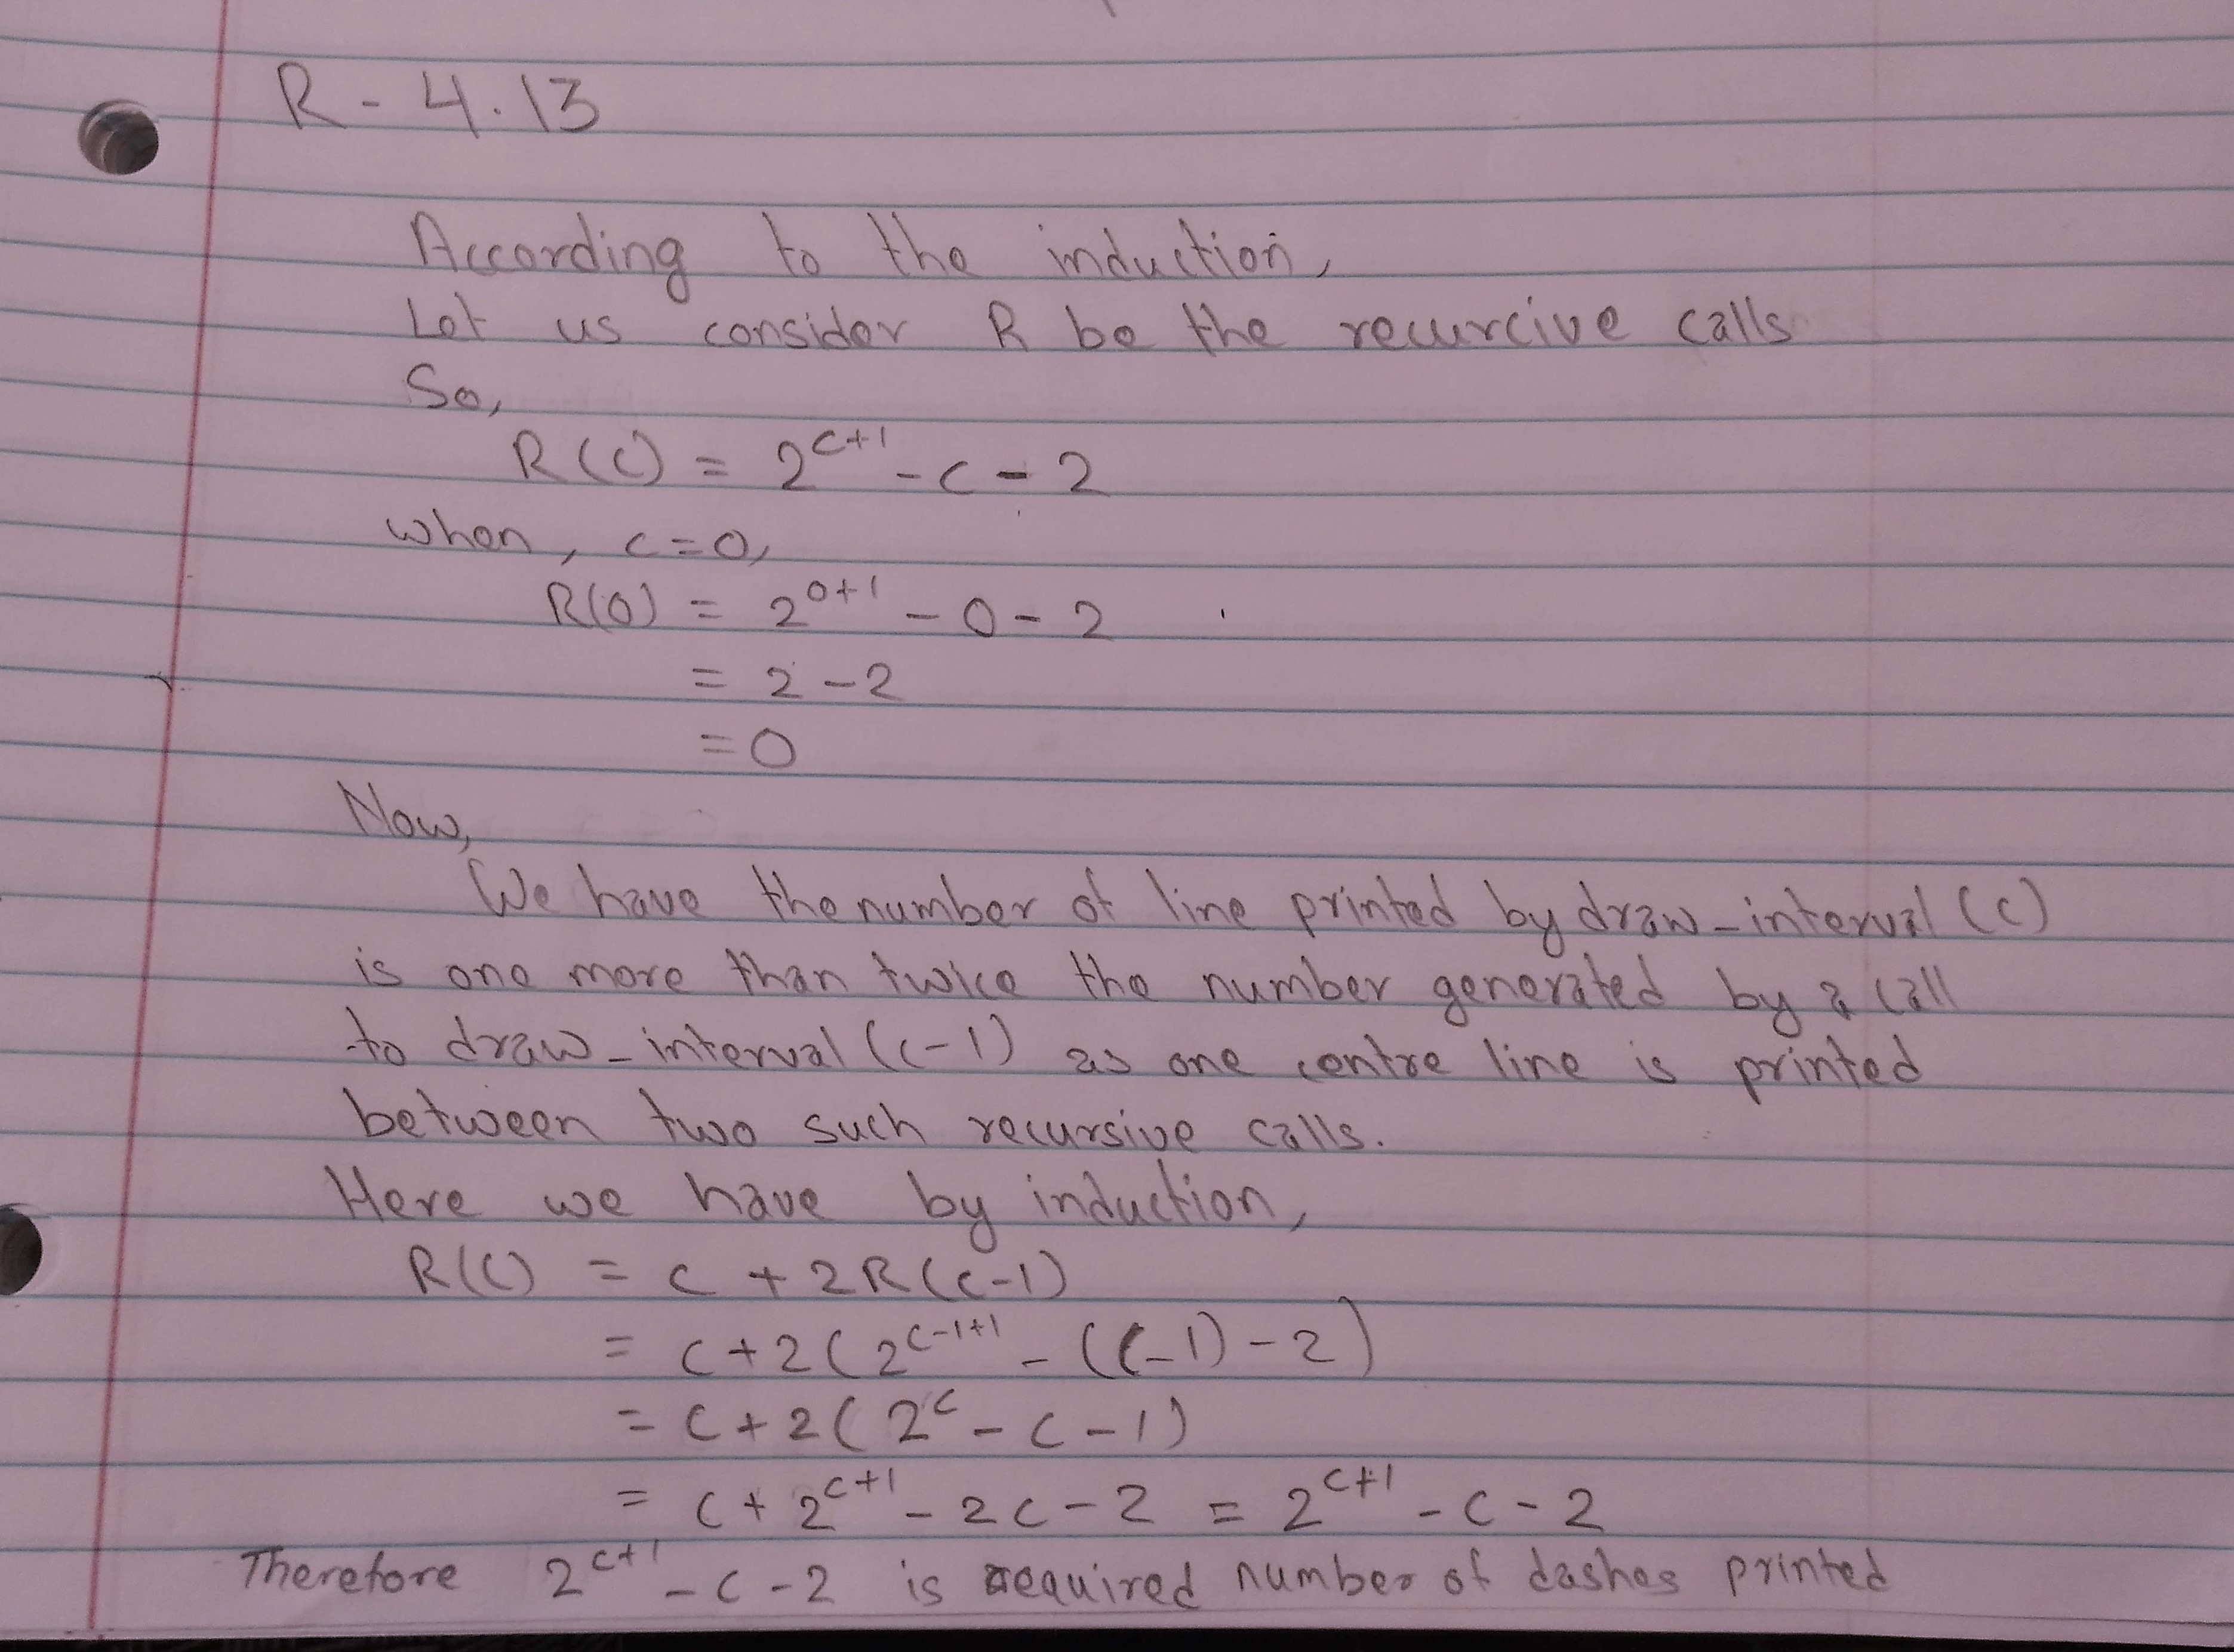 R - 4.13
According to the induction,
Let us consider R be the recurcive calls
So,
R(C) = 2^{C+1} - C - 2
when, c=0,
R(0) = 2^{0+1} - 0 - 2
= 2 - 2
= 0
Now,
We have the number of line printed by draw_interval (c)
is one more than twice the number generated by a call
to draw_interval (c-1) as one centre line is printed
between two such recursive calls.
Here we have by induction,
R(C) = C + 2R(C-1)
= C + 2(2^{C-1+1} - (C-1) - 2)
= C + 2(2^C - C - 1)
= C + 2^{C+1} - 2C - 2 = 2^{C+1} - C - 2
Therefore 2^{C+1} - C - 2 is required number of dashes printed